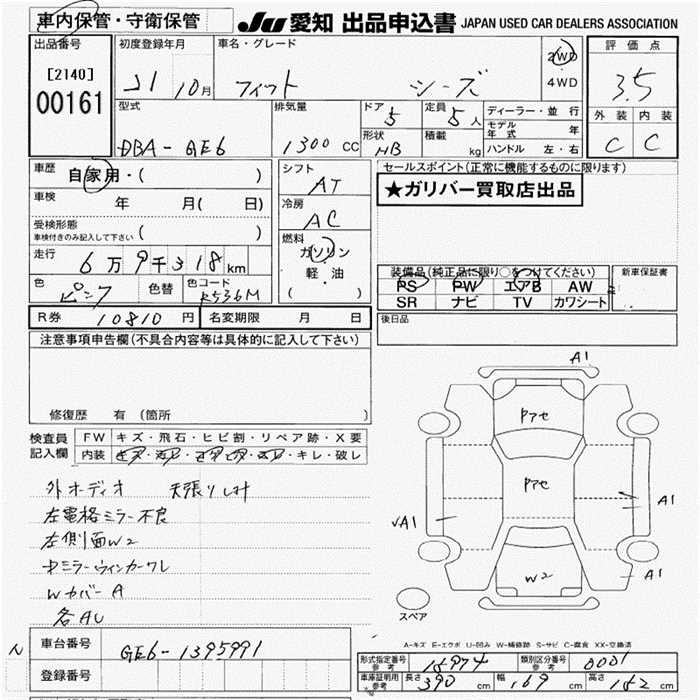 車内保管・守衛保管
JU 愛知 出品申込書 JAPAN USED CAR DEALERS ASSOCIATION
出品番号
[2140]
00161
初度登録年月
21 10月
車名・グレード
フィット シーズ
2WD
4WD
評価点
3.5
外装 内装
C C
型式
DBA-GE6
排気量
1300 CC
ドア
5
形状
HB
定員
5人
積載
kg
ディーラー・並行
モデル年式 年
ハンドル 左・右
車歴
自家用・( )
車検
年 月( 日)
受検形態
車検付きのみ記入して下さい ( )
走行
6万9千318km
色
ピンク
色替
色コード
R536M
シフト
AT
冷房
AC
燃料
ガソリン
軽・油
( )
セールスポイント(正常に機能するものに限ります)
★ガリバー買取店出品
装備品(純正品に限り○をつけてください)
PS PW エアB AW
SR ナビ TV カワシート
新車保証書
後日品
R券 10810 円
名変期限 月 日
注意事項申告欄(不具合内容等は具体的に記入して下さい)
修復歴 有 (箇所 )
検査員記入欄
FW キズ・飛石・ヒビ割・リペア跡・X要
内装
・キレ・破レ
外オーディオ 天張りしみ
左電格ミラー不良
左側面W2
オミラーウィンカーワレ
WカバーA
各AU
A1
Pアセ
Pアセ
W2
A1
√A1
A1
スペア
A-キズ E-エクボ U-凹み W-補修跡 S-サビ C-腐食 XX-交換済
N
車台番号
GE6-1395991
登録番号
形式指定番号 参考
類別区分番号 参考
0001
車庫証明用 参考
長さ 390 cm
幅 169 cm
高さ 152 cm